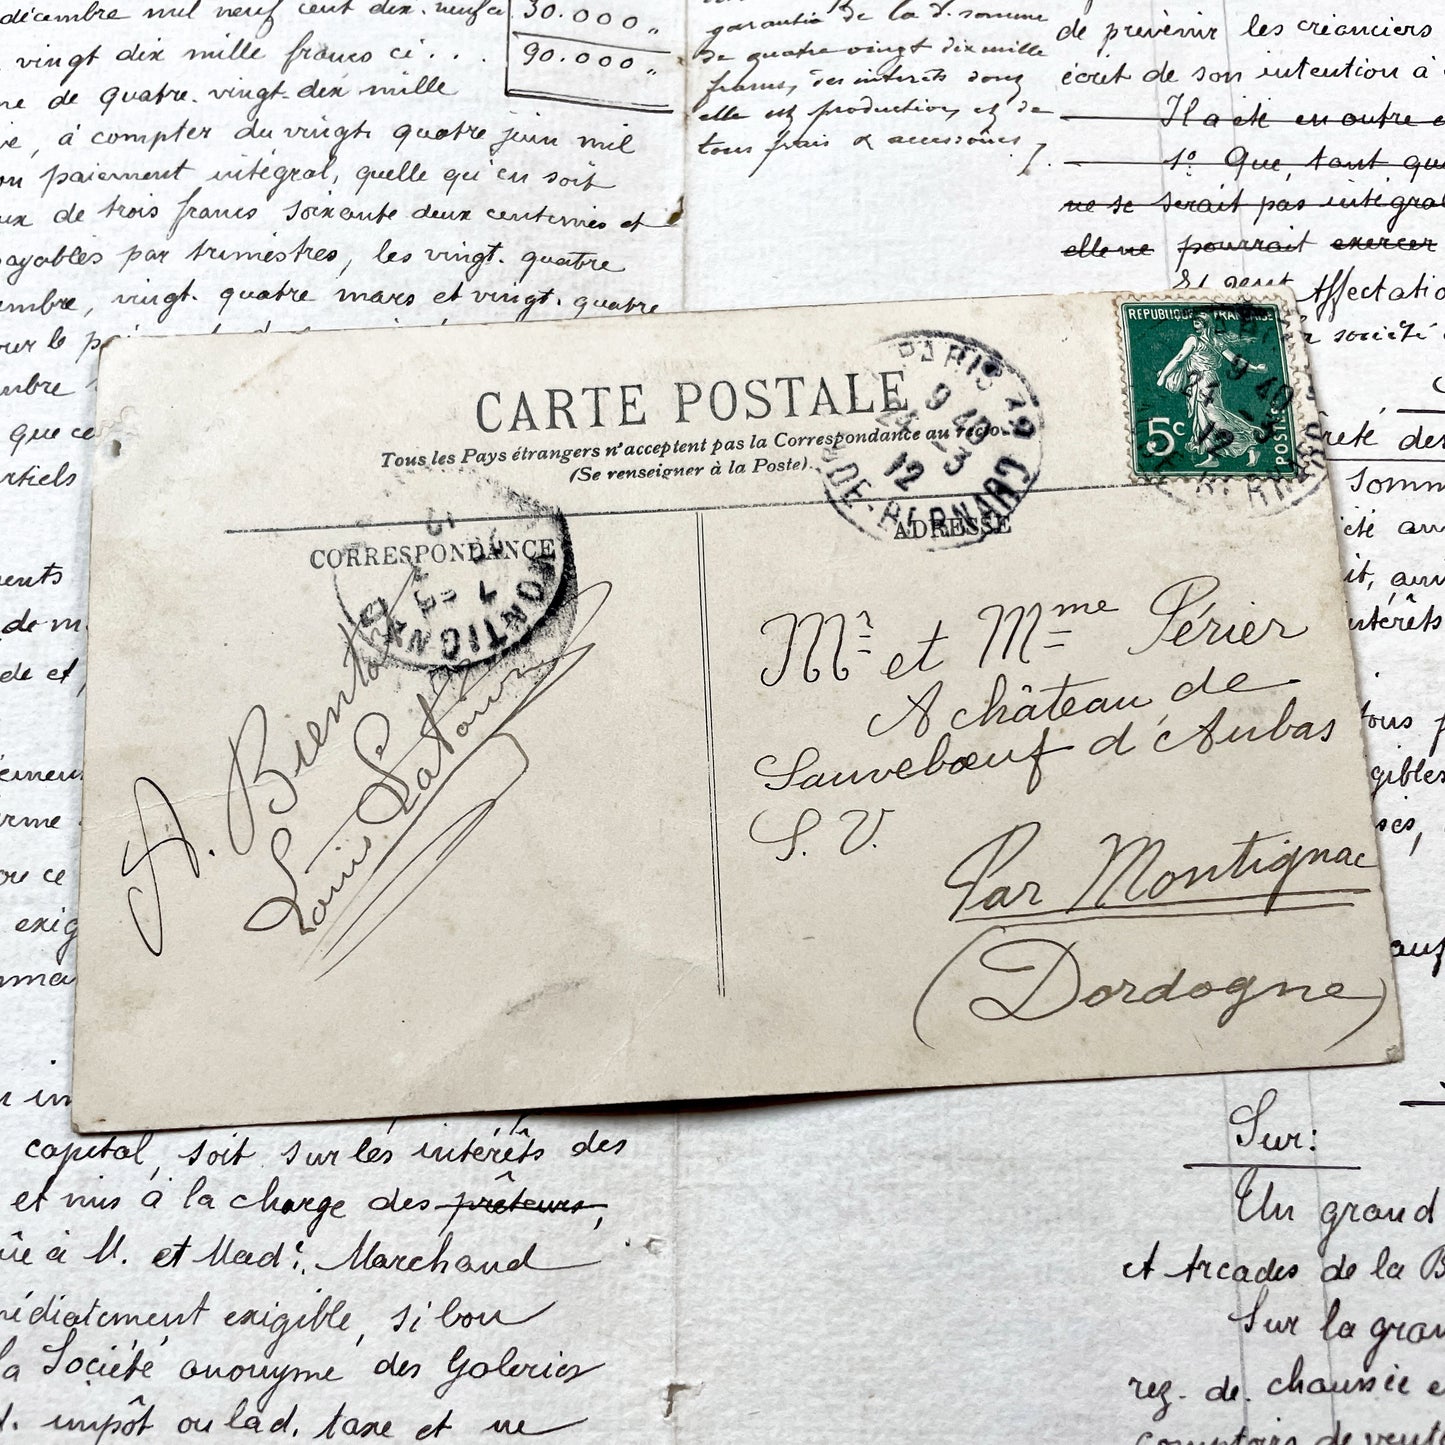 décembre mil neuf cent dix. neuf ci
30.000 "
vingt dix mille francs ci . . .
90.000 "
de quatre. vingt. dix mille
à compter du vingt. quatre juin mil
paiement intégral, quelle qu'en soit
de trois francs soixante deux centimes et
payables par trimestres, les vingt. quatre
vingt. quatre mars et vingt. quatre
garantie de la d. somme
de quatre vingt dix mille
francs, des intérêts dont
elle est production, et de
tous frais & accessoires /.
de prévenir les créanciers
écrit de son intention à
Il a été en outre
1º Que, tant que
ne se serait pas intégral
elle ne pourrait exercer
Affectatio
société
CARTE POSTALE
Tous les Pays étrangers n'acceptent pas la Correspondance au recto
(Se renseigner à la Poste).
PARIS 19
9 40
12
REPUBLIQUE FRANÇAISE
5c
POSTES
CORRESPONDANCE
ADRESSE
MONTIGNAC
A. Bientôt
Louis Latour
Mr et Mme Périer
A château de
Sauvebœuf d'Aubas
S. V.
Par Montignac
(Dordogne)
capital, soit sur les intérêts des
et mis à la charge des prêteurs,
à M. et Mad. Marchand
exigible, si bon
la Société anonyme des Galeries
impôt ou lad. taxe et ne
Sur:
Un grand
A Arcades de la B
Sur la gran
rez. de. chaussée e
comptoirs de vente